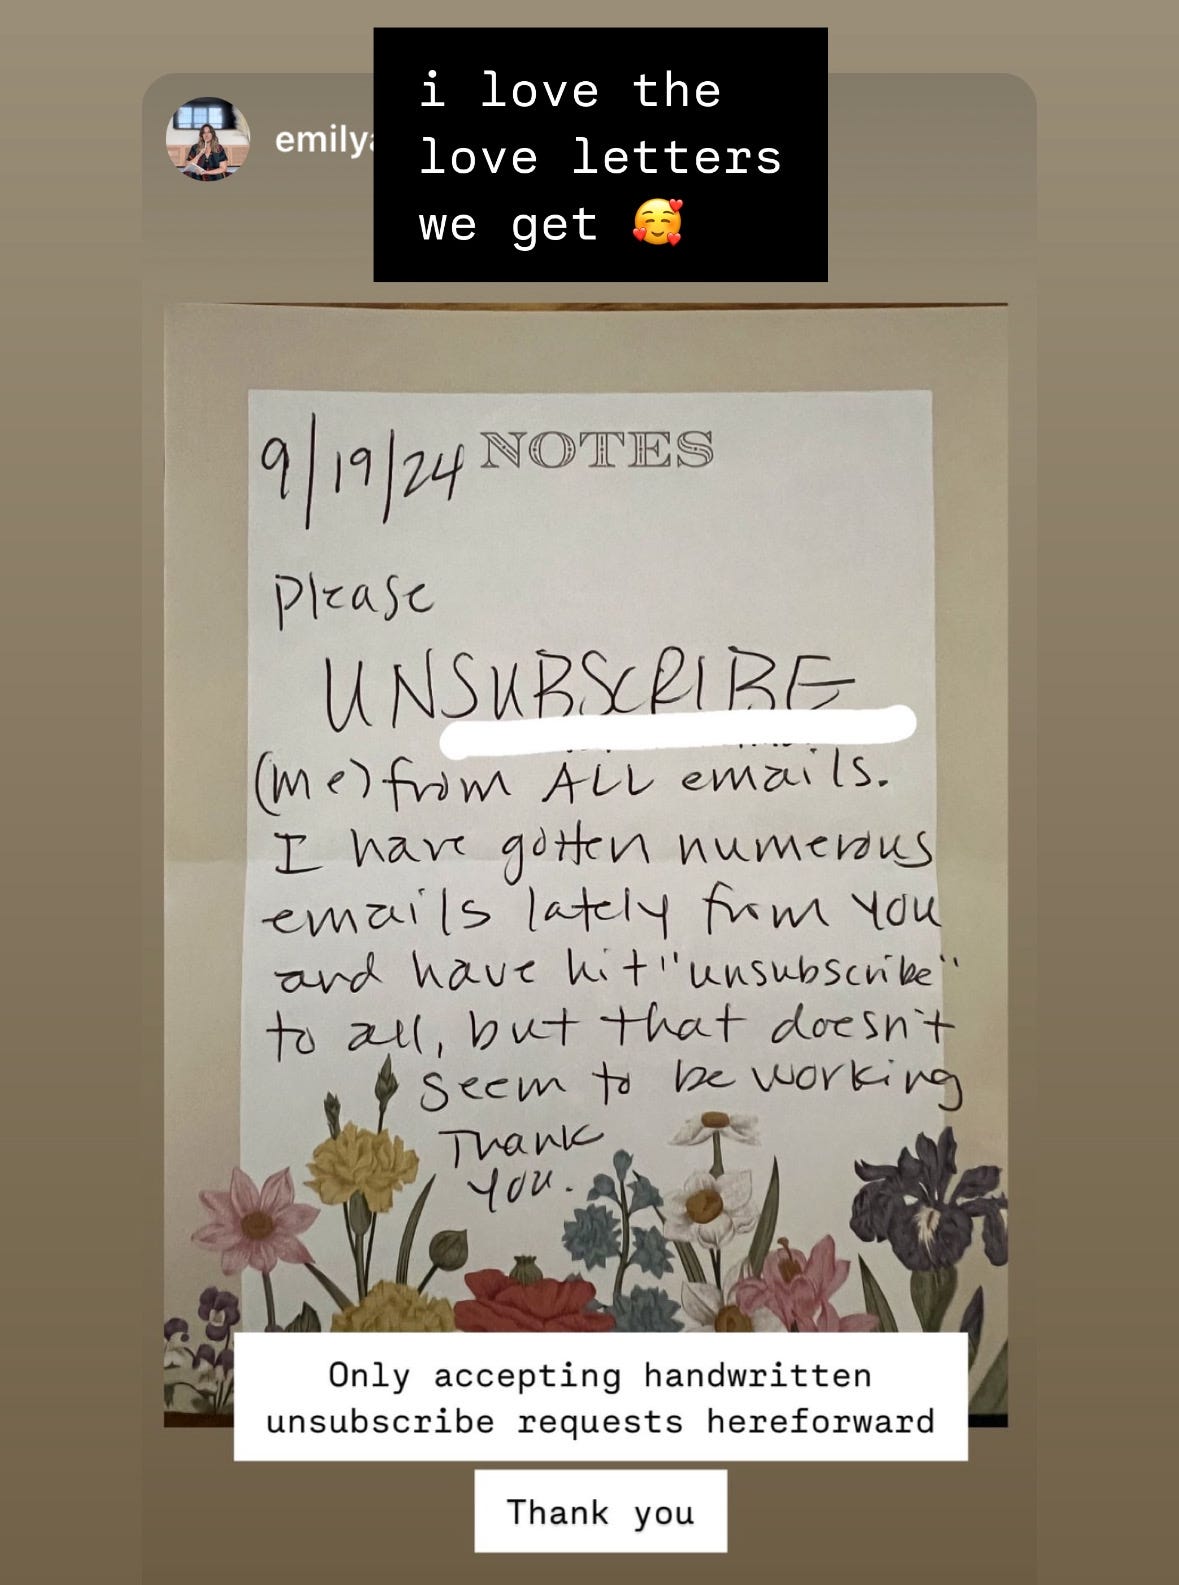 i love the
love letters
we get 🥰
emilya
9/19/24 NOTES
Please
UNSUBSCRIBE
(me) from ALL emails.
I have gotten numerous
emails lately from you
and have hit "unsubscribe"
to all, but that doesn't
seem to be working
Thank
you.
Only accepting handwritten
unsubscribe requests hereforward
Thank you